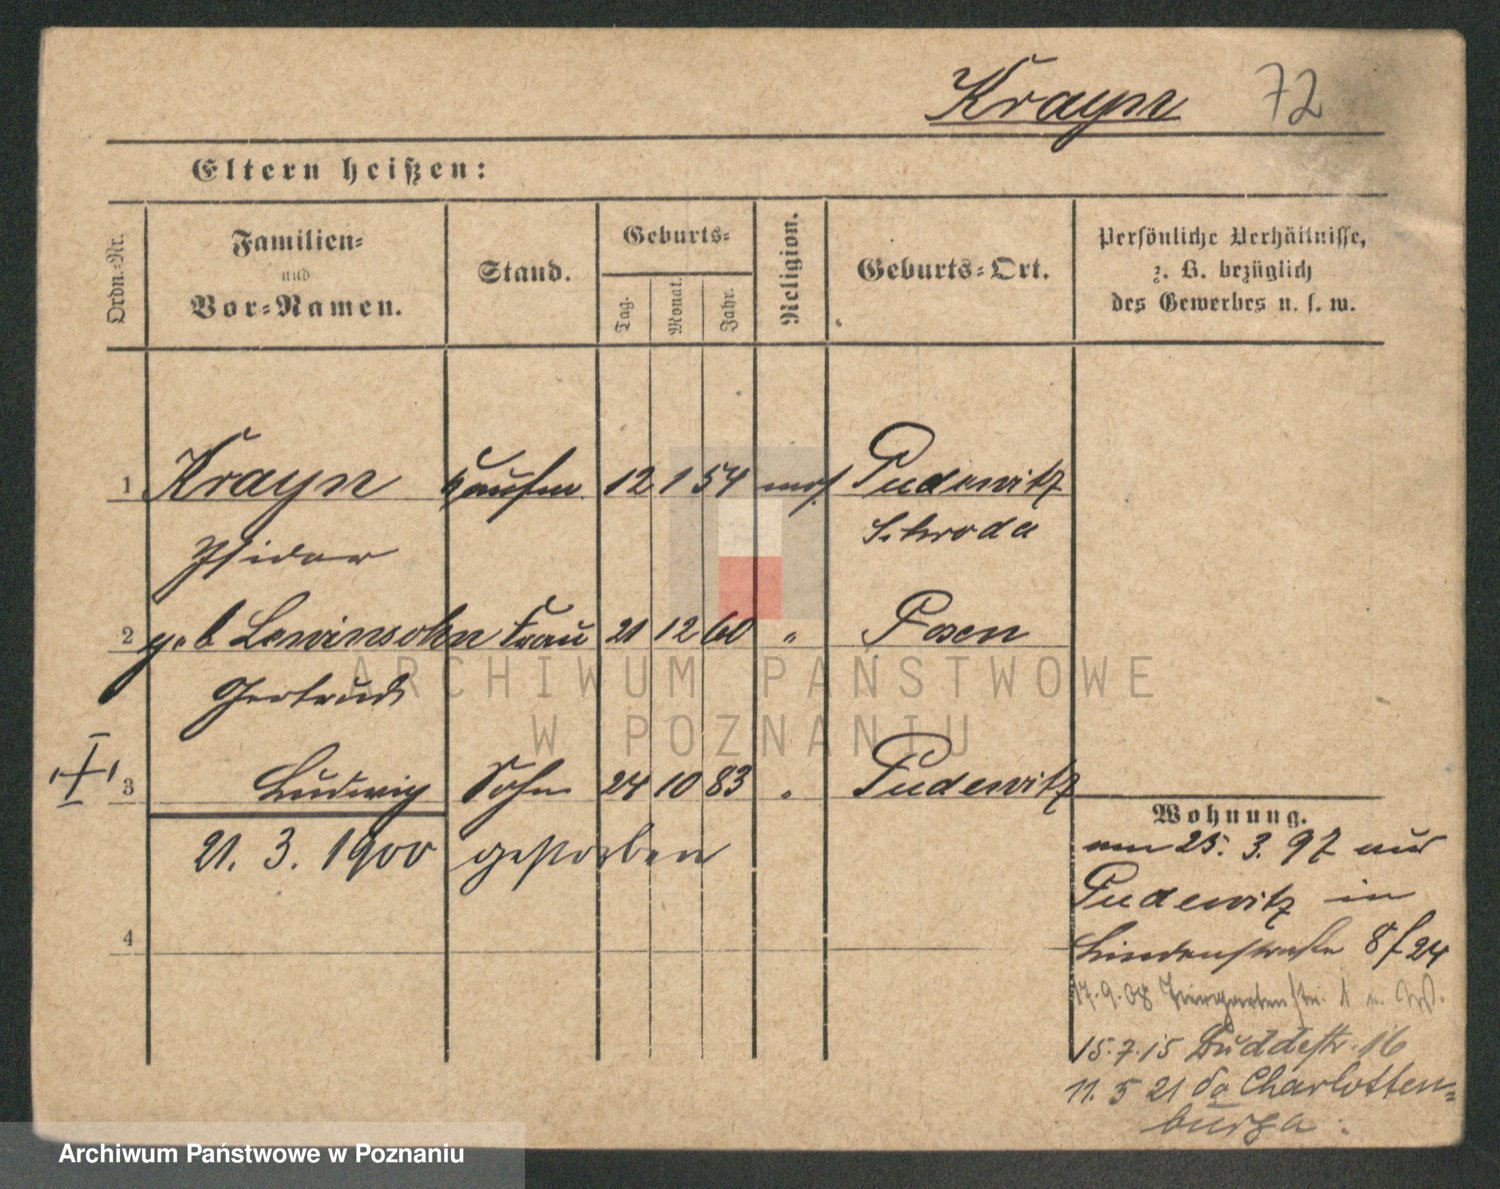 Krayn 72
Eltern heißen:
Ordn.-Nr.
Familien-
und
Vor-Namen.
Stand.
Geburts-
Tag.
Monat.
Jahr.
Religion.
Geburts-Ort.
Persönliche Verhältnisse,
z. B. bezüglich
des Gewerbes u. s. w.
1 Krayn Kaufm. 12 1 54 mos. Pudewitz
Isidor Schroda
2 geb Lewinsohn Frau 21 12 60 " Posen
Gertrud
3 Ludwig Sohn 24 10 83 " Pudewitz
21. 3. 1900 gestorben
4
Wohnung.
am 25. 3. 97 aus
Pudewitz in
Lindenstraße 8 f 24
17.9.08 Tiergartenstr. 1
15.7.15 Buddestr. 16
11. 5 21 Charlotten-
burg
ARCHIWUM PAŃSTWOWE
W POZNANIU
Archiwum Państwowe w Poznaniu